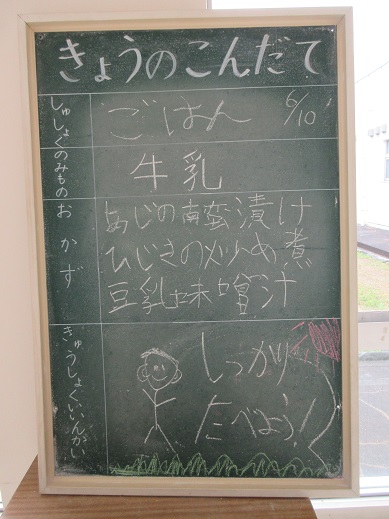 きょうのこんだて
しゅしょく
ごはん
6/10
のみもの
牛乳
おかず
あじの南蛮漬け
ひじきの炒め煮
豆乳味噌汁
きゅうしょくいいんかい
しっかり
たべよう!